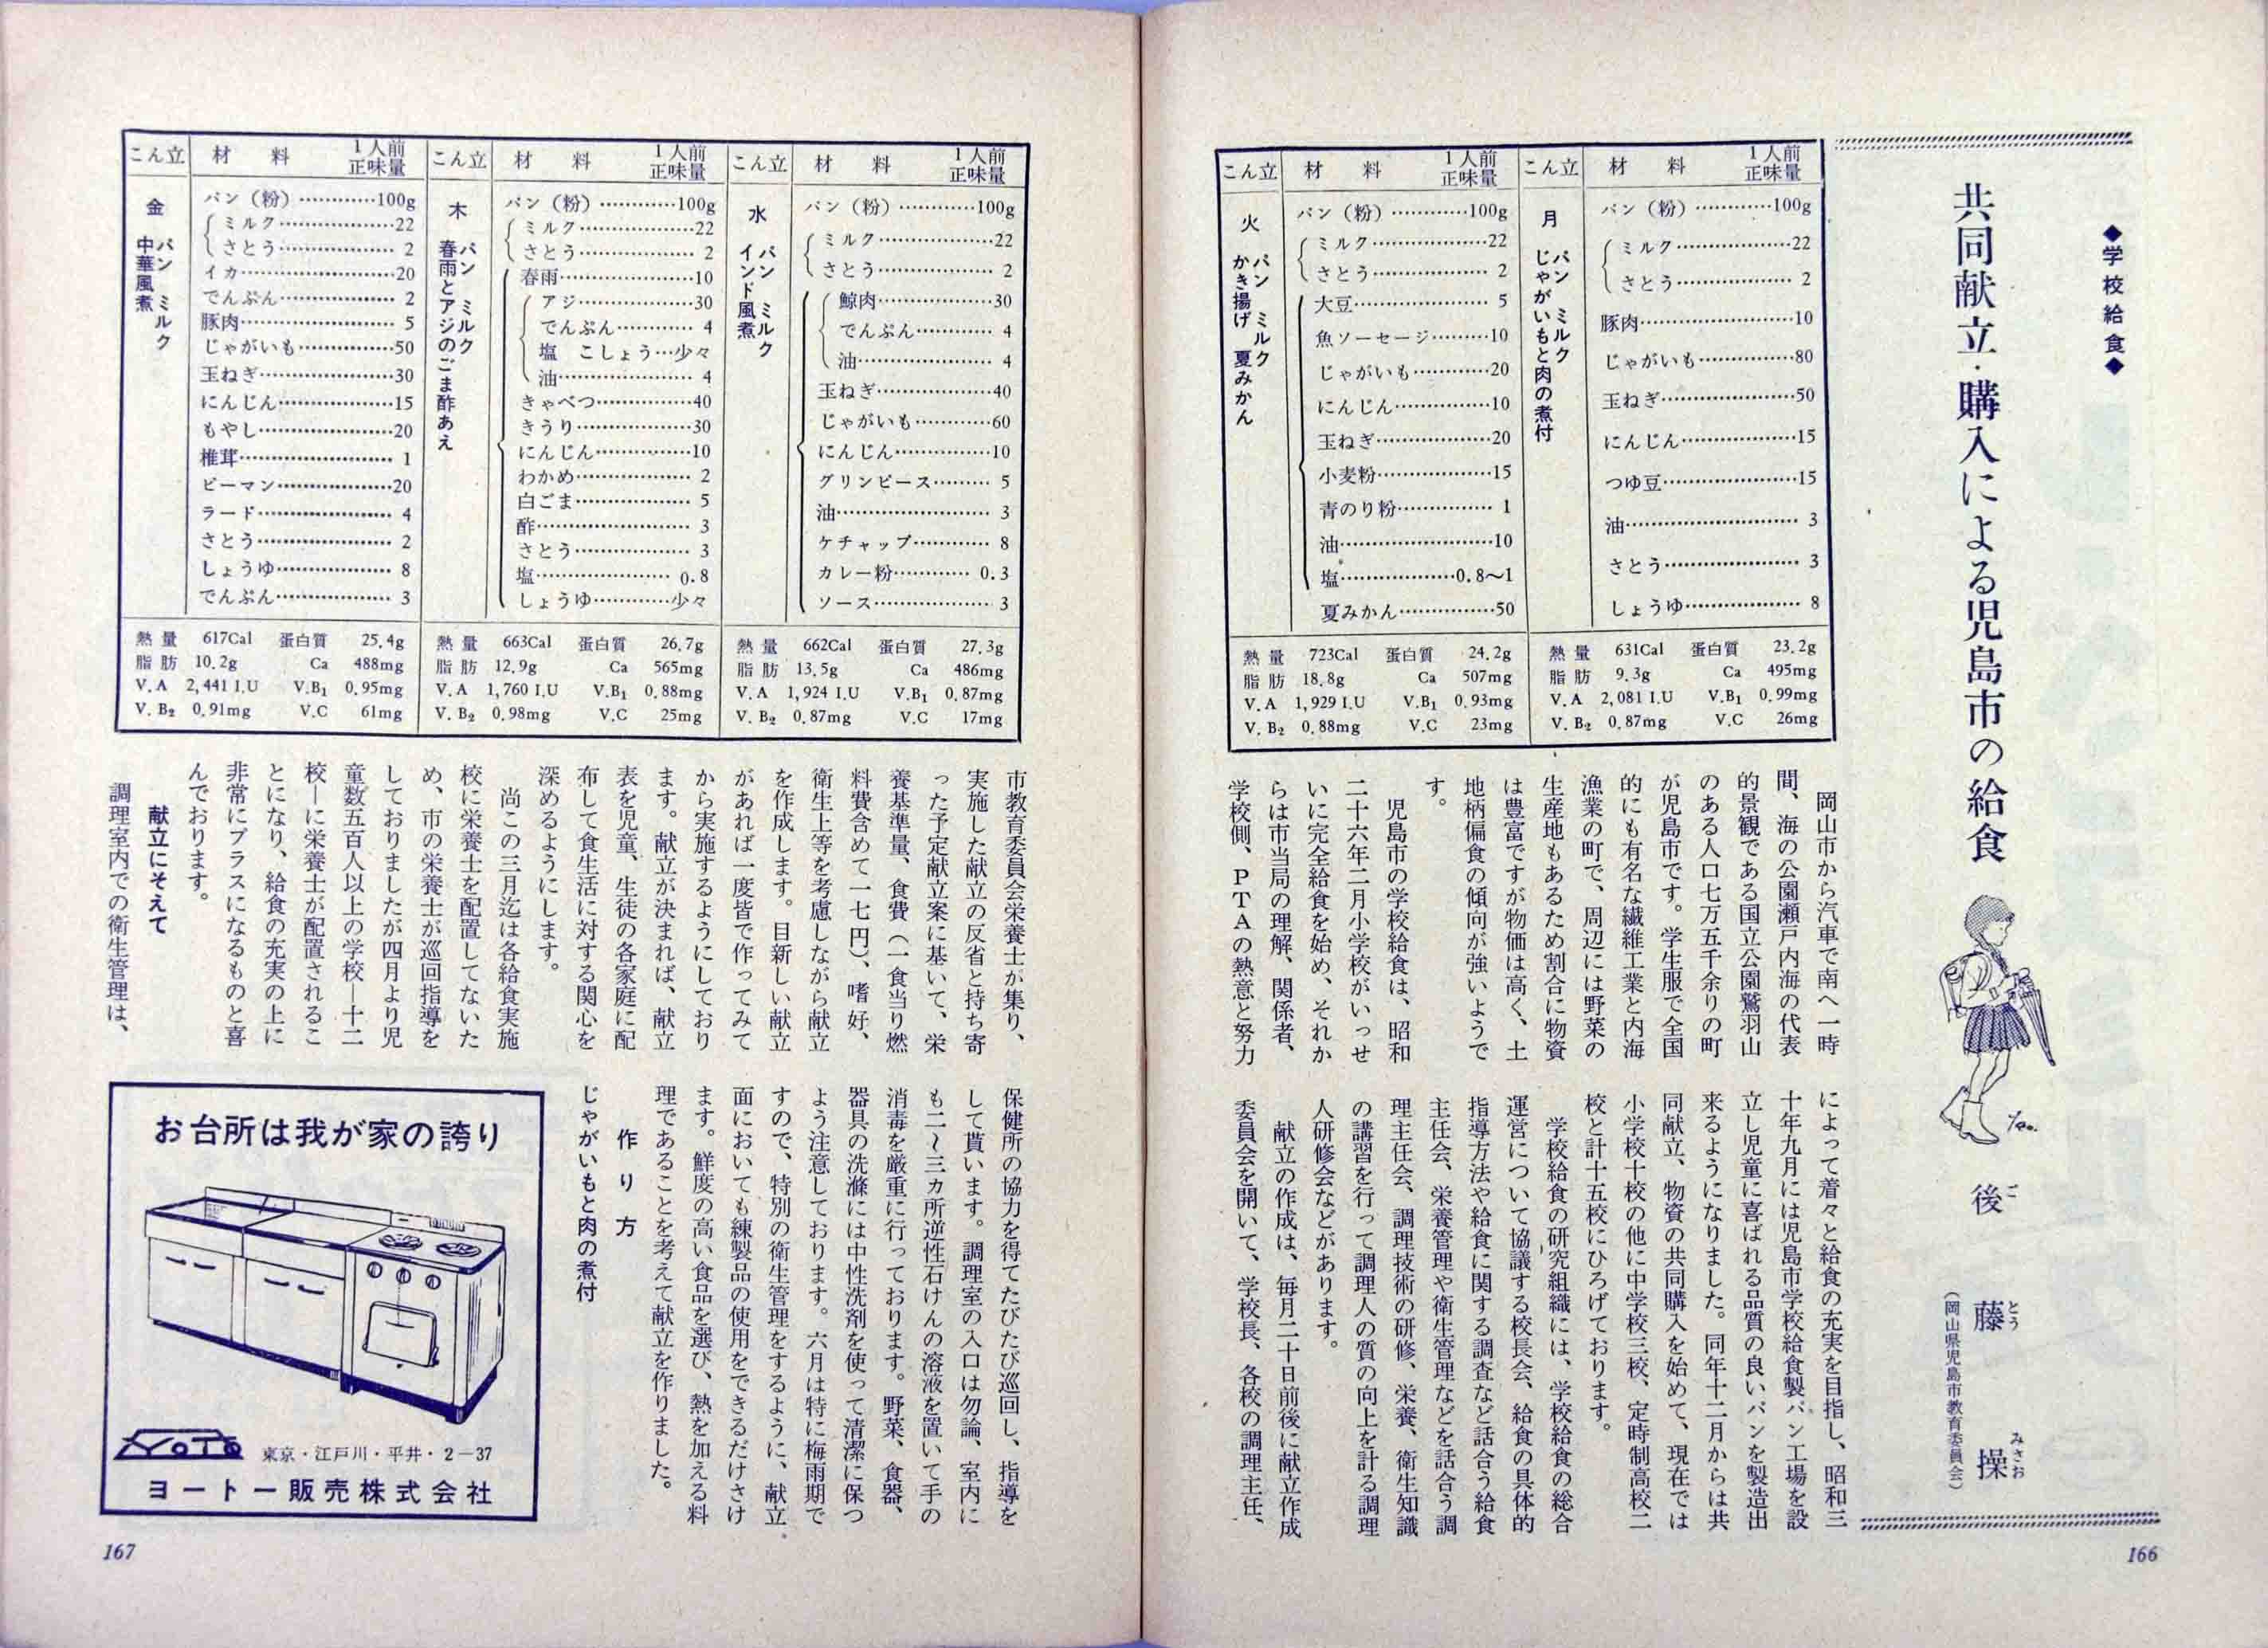 ◆学校給食◆
共同献立・購入による児島市の給食
後藤操
ごとうみさお
（岡山県児島市教育委員会）
こん立 材料 1人前正味量
月 パン ミルク
じゃがいもと肉の煮付
パン（粉）…………100g
ミルク………………22
さとう……………… 2
豚肉…………………10
じゃがいも…………80
玉ねぎ………………50
にんじん……………15
つゆ豆………………15
油…………………… 3
さとう……………… 3
しょうゆ…………… 8
熱量 631Cal 蛋白質 23.2g
脂肪 9.3g Ca 495mg
V.A 2,081 I.U V.B₁ 0.99mg
V.B₂ 0.87mg V.C 26mg
こん立 材料 1人前正味量
火 パン ミルク
かき揚げ 夏みかん
パン（粉）…………100g
ミルク………………22
さとう……………… 2
大豆………………… 5
魚ソーセージ………10
じゃがいも…………20
にんじん……………10
玉ねぎ………………20
小麦粉………………15
青のり粉…………… 1
油……………………10
塩………………0.8〜1
夏みかん……………50
熱量 723Cal 蛋白質 24.2g
脂肪 18.8g Ca 507mg
V.A 1,929 I.U V.B₁ 0.93mg
V.B₂ 0.88mg V.C 23mg
岡山市から汽車で南へ一時
間、海の公園瀬戸内海の代表
的景観である国立公園鷲羽山
のある人口七万五千余りの町
が児島市です。学生服で全国
的にも有名な繊維工業と内海
漁業の町で、周辺には野菜の
生産地もあるため割合に物資
は豊富ですが物価は高く、土
地柄偏食の傾向が強いようで
す。
児島市の学校給食は、昭和
二十六年二月小学校がいっせ
いに完全給食を始め、それか
らは市当局の理解、関係者、
学校側、PTAの熱意と努力
によって着々と給食の充実を目指し、昭和三
十年九月には児島市学校給食製パン工場を設
立し児童に喜ばれる品質の良いパンを製造出
来るようになりました。同年十二月からは共
同献立、物資の共同購入を始めて、現在では
小学校十校の他に中学校三校、定時制高校二
校と計十五校にひろげております。
学校給食の研究組織には、学校給食の総合
運営について協議する校長会、給食の具体的
指導方法や給食に関する調査など話合う給食
主任会、栄養管理や衛生管理などを話合う調
理主任会、調理技術の研修、栄養、衛生知識
の講習を行って調理人の質の向上を計る調理
人研修会などがあります。
献立の作成は、毎月二十日前後に献立作成
委員会を開いて、学校長、各校の調理主任、
166
こん立 材料 1人前正味量
水 パン ミルク
インド風煮
パン（粉）…………100g
ミルク………………22
さとう……………… 2
鯨肉…………………30
でんぷん…………… 4
油…………………… 4
玉ねぎ………………40
じゃがいも…………60
にんじん……………10
グリンピース……… 5
油…………………… 3
ケチャップ………… 8
カレー粉………… 0.3
ソース……………… 3
熱量 662Cal 蛋白質 27.3g
脂肪 13.5g Ca 486mg
V.A 1,924 I.U V.B₁ 0.87mg
V.B₂ 0.87mg V.C 17mg
こん立 材料 1人前正味量
木 パン ミルク
春雨とアジのごま酢あえ
パン（粉）…………100g
ミルク………………22
さとう……………… 2
春雨…………………10
アジ…………………30
でんぷん…………… 4
塩 こしょう…少々
油…………………… 4
きゃべつ……………40
きうり………………30
にんじん……………10
わかめ……………… 2
白ごま……………… 5
酢…………………… 3
さとう……………… 3
塩………………… 0.8
しょうゆ…………少々
熱量 663Cal 蛋白質 26.7g
脂肪 12.9g Ca 565mg
V.A 1,760 I.U V.B₁ 0.88mg
V.B₂ 0.98mg V.C 25mg
こん立 材料 1人前正味量
金 パン ミルク
中華風煮
パン（粉）…………100g
ミルク………………22
さとう……………… 2
イカ…………………20
でんぷん…………… 2
豚肉………………… 5
じゃがいも…………50
玉ねぎ………………30
にんじん……………15
もやし………………20
椎茸………………… 1
ピーマン……………20
ラード……………… 4
さとう……………… 2
しょうゆ…………… 8
でんぷん…………… 3
熱量 617Cal 蛋白質 25.4g
脂肪 10.2g Ca 488mg
V.A 2,441 I.U V.B₁ 0.95mg
V.B₂ 0.91mg V.C 61mg
市教育委員会栄養士が集り、
実施した献立の反省と持ち寄
った予定献立案に基いて、栄
養基準量、食費（一食当り燃
料費含めて一七円）、嗜好、
衛生上等を考慮しながら献立
を作成します。目新しい献立
があれば一度皆で作ってみて
から実施するようにしており
ます。献立が決まれば、献立
表を児童、生徒の各家庭に配
布して食生活に対する関心を
深めるようにします。
尚この三月迄は各給食実施
校に栄養士を配置してないた
め、市の栄養士が巡回指導を
しておりましたが四月より児
童数五百人以上の学校―十二
校―に栄養士が配置されるこ
とになり、給食の充実の上に
非常にプラスになるものと喜
んでおります。
献立にそえて
調理室内での衛生管理は、
保健所の協力を得てたびたび巡回し、指導を
して貰います。調理室の入口は勿論、室内に
も二〜三カ所逆性石けんの溶液を置いて手の
消毒を厳重に行っております。野菜、食器、
器具の洗滌には中性洗剤を使って清潔に保つ
よう注意しております。六月は特に梅雨期で
すので、特別の衛生管理をするように、献立
面においても練製品の使用をできるだけさけ
ます。鮮度の高い食品を選び、熱を加える料
理であることを考えて献立を作りました。
作り方
じゃがいもと肉の煮付
お台所は我が家の誇り
YOTO
東京・江戸川・平井・2－37
ヨートー販売株式会社
167